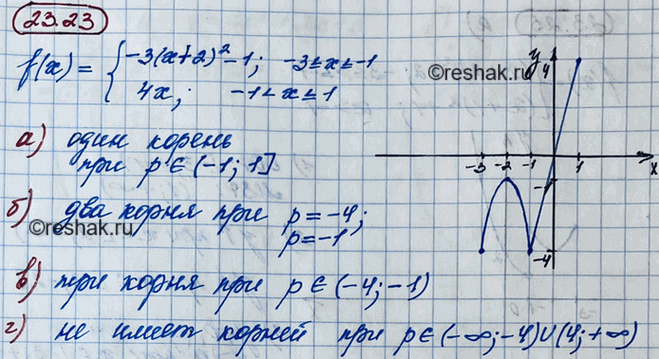 23.23
f(x) = { -3(x+2)² - 1; -3 ≤ x ≤ -1
4x; -1 < x ≤ 1
©reshak.ru
а) один корень
при p ∈ (-1; 1]
©reshak.ru
б) два корня при p = -4;
p = -1
в) три корня при p ∈ (-4; -1)
г) не имеет корней при p ∈ (-∞; -4) ∪ (4; +∞)
y
4
-3 -2 -1 1 x
-1
-4